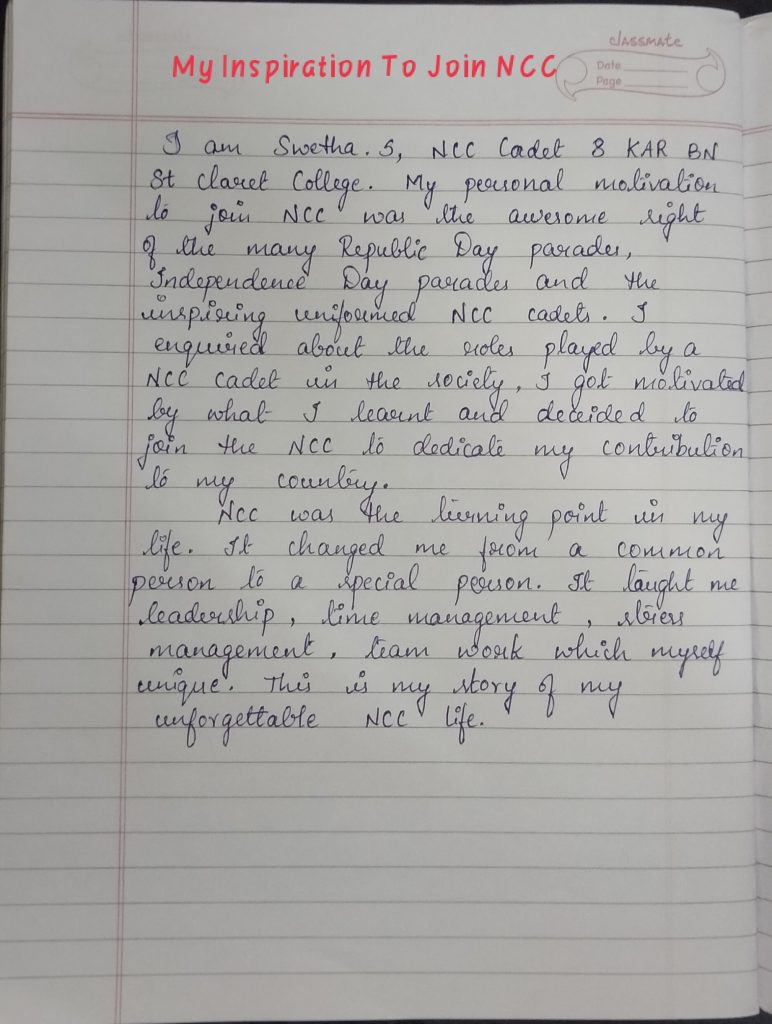 My Inspiration To Join NCC
classmate
Date
Page
I am Swetha. S, NCC Cadet 8 KAR BN
St Claret College. My personal motivation
to join NCC was the awesome sight
of the many Republic Day parades,
Independence Day parades and the
inspiring uniformed NCC cadets. I
enquired about the roles played by a
NCC cadet in the society, I got motivated
by what I learnt and decided to
join the NCC to dedicate my contribution
to my country.
NCC was the turning point in my
life. It changed me from a common
person to a special person. It taught me
leadership, time management, stress
management, team work which myself
unique. This is my story of my
unforgettable NCC life.